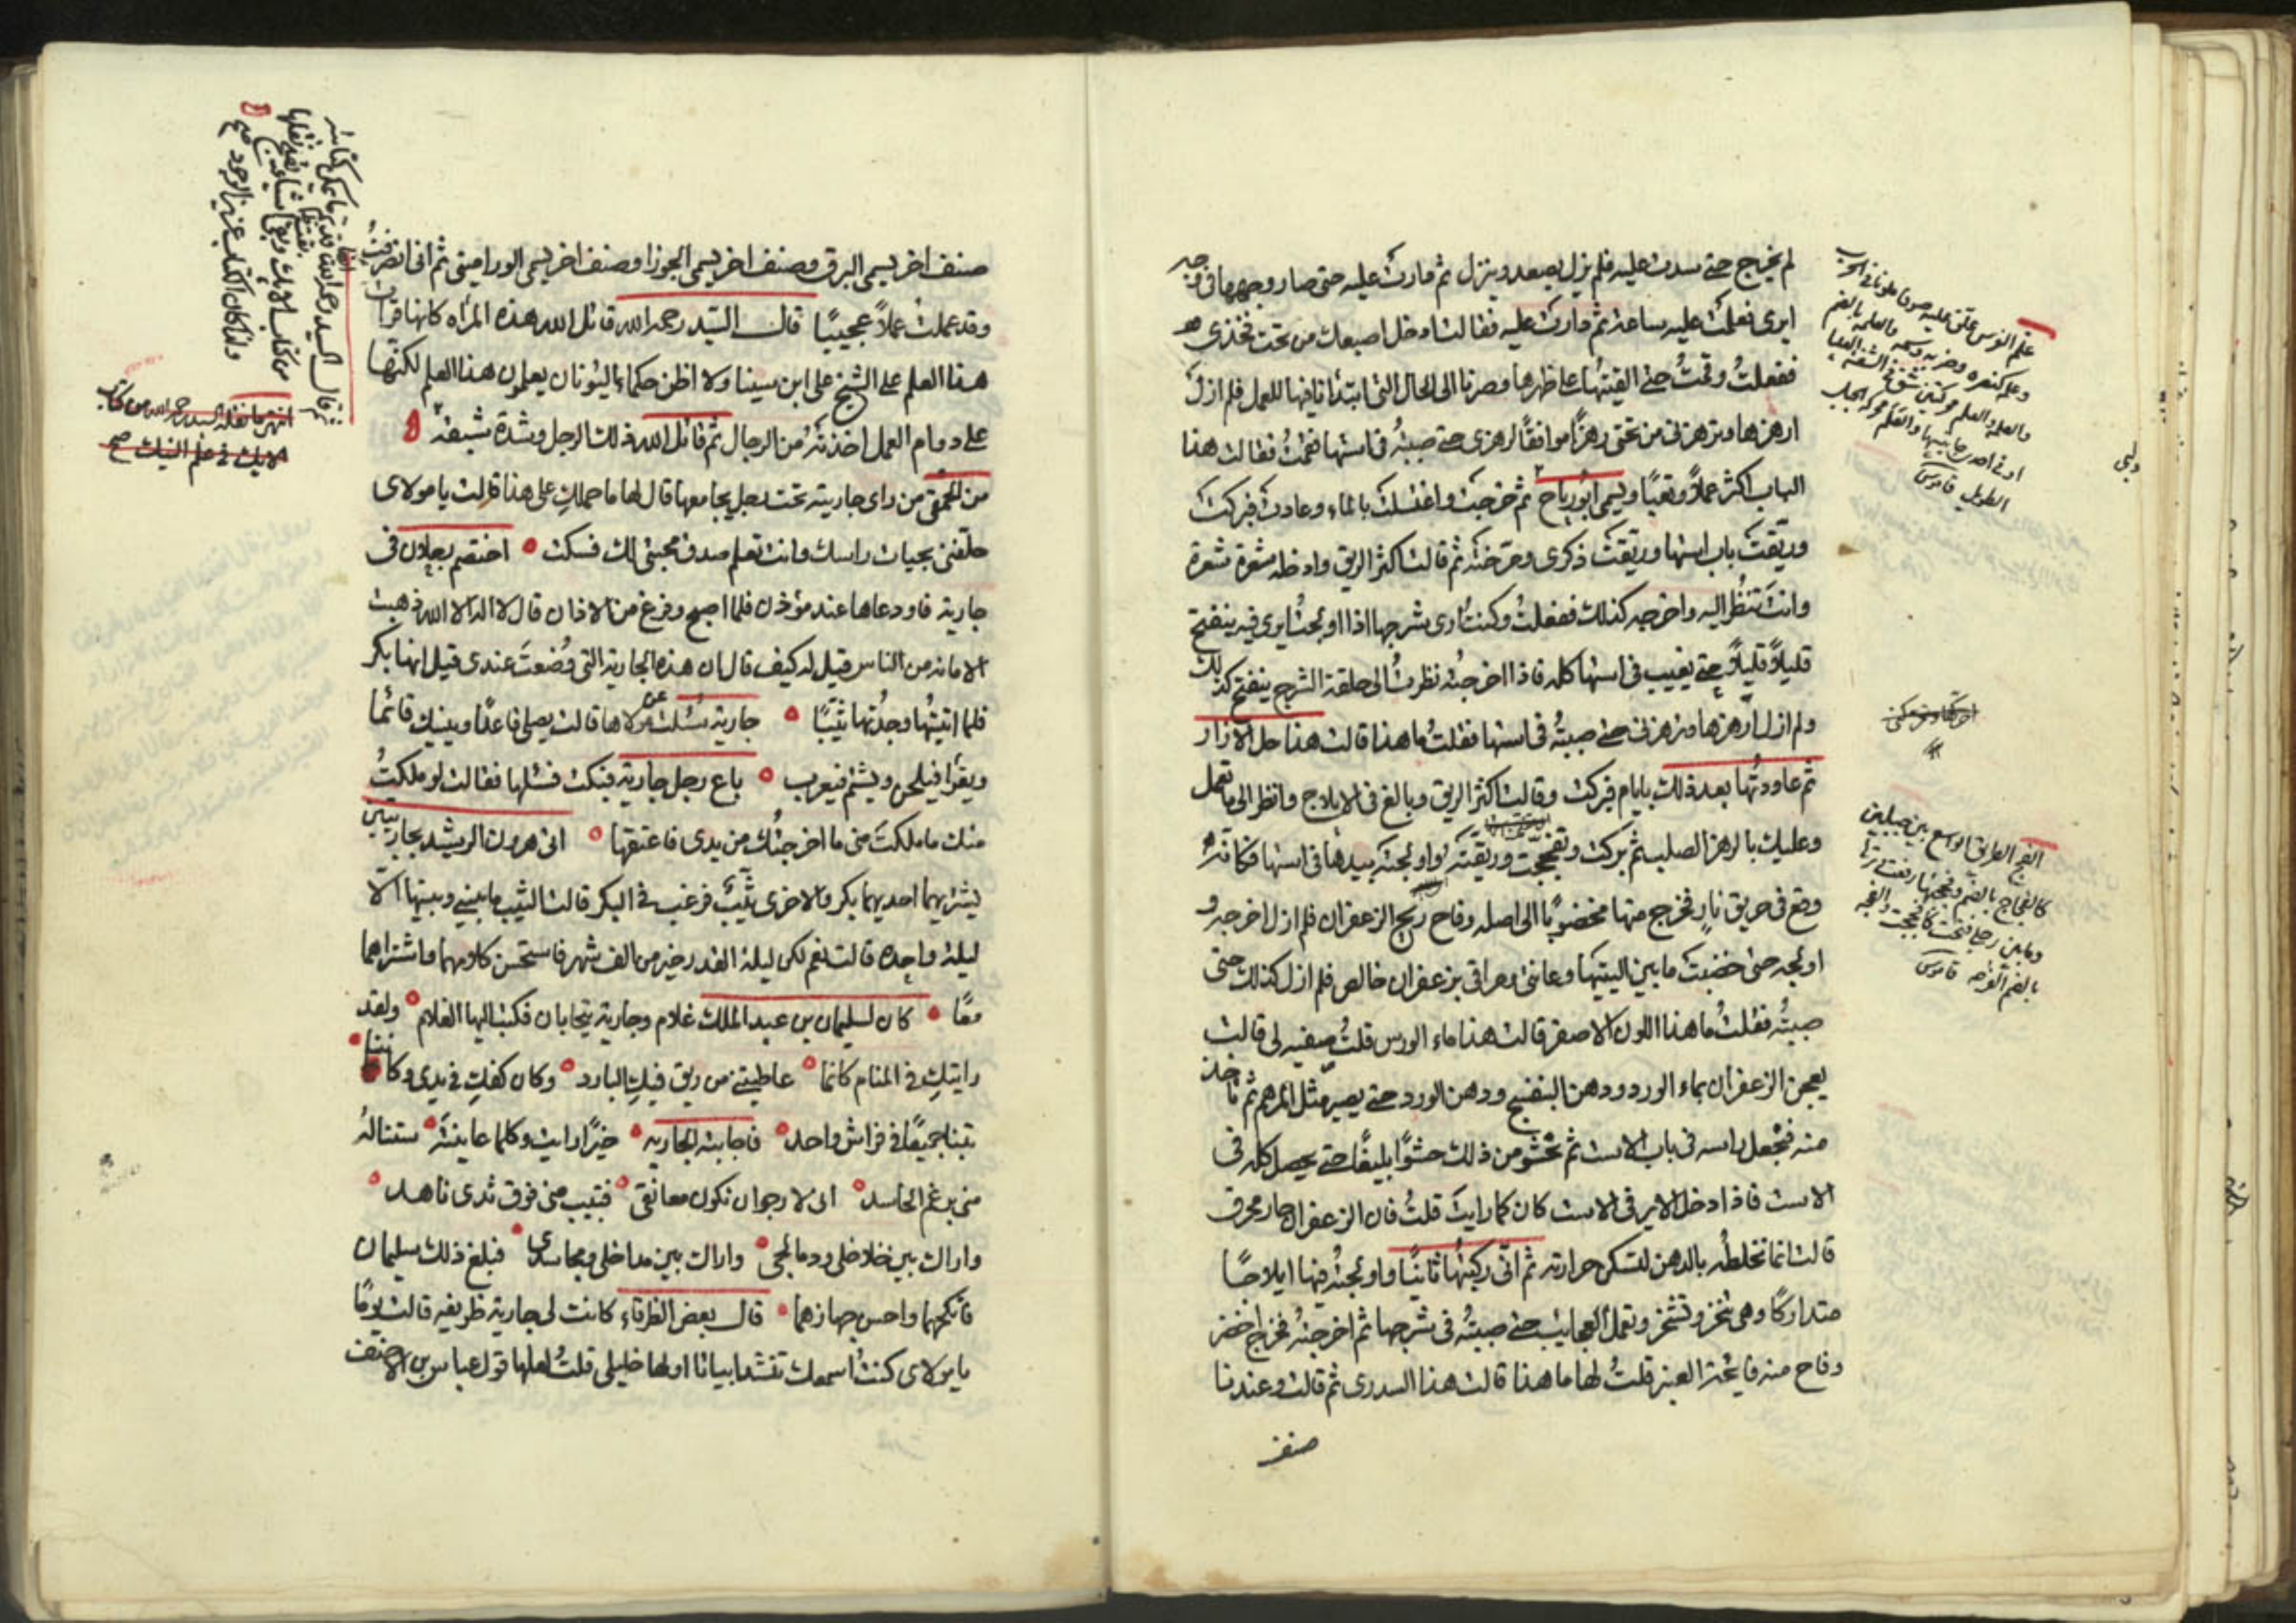 لم يخرج حتى سدت عليه فلم يزل يصعد وينزل ثم دارت عليه حتى صار وجهها في وجهي
ايرى فعلت عليه ساعة ثم دارت عليه فقالت ادخل اصبعك من تحت فخذى
ففعلت وقمت حتى القيتها على ظهرها وصرنا الى الحال التى ابتدأنا فيها للعمل فلم ازل
ارهزها وترهزنى من تحتى رهزًا موافقًا لرهزى حتى صببته فى استها فقمت فقالت هذا
الباب اكثر عملاً وتعبًا ويسمى ابو رياح ثم خرجت واغتسلت بالماء وعادت فبركت
وريقت باب استها وريقت ذكرى ومرخته ثم قالت اكثر الريق وادخله شعرة شعرة
وانت تنظر اليه واخرجه كذلك ففعلت وكنت ارى شرجها اذا اولجت ايرى فيه ينفتح
قليلاً قليلاً حتى يغيب فى استها كله فاذا اخرجته نظرت الى حلقة الشرج ينفتح كذلك
ولم ازل ارهزها وترهزنى حتى صببته فى استها فقلت ما هذا قالت هذا حل الازار
ثم عاودتها بعد ذلك بايام فبركت وقالت اكثر الريق وبالغ فى الايلاج وانظر الى ما تعمل
وعليك بالرهز الصلب ثم بركت وتفججت وريقته واولجته بيدها فى استها فكانه
وقع فى حريق نار فخرج منها مخضوبًا الى اصله وفاح ريح الزعفران فلم ازل اخرجه و
اولجه حتى خضبت ما بين اليتيها وعانتى ومراقى بزعفران خالص فلم ازل كذلك حتى
صببته فقلت ما هذا اللون الاصفر قالت هذا ماء الورس قلت صفيه لى قالت
يعجن الزعفران بماء الورد ودهن البنفسج ودهن الورد حتى يصير مثل المرهم ثم تاخذ
منه فتجعل راسه فى باب الاست ثم تحشو من ذلك حشوًا بليغًا حتى يحصل كله فى
الاست فاذا دخل الاير فى الاست كان كما رايت قلت فان الزعفران حار محرق
قالت انما تخلطه بالدهن لتسكن حرارته ثم انى ركبتها ثانيًا واولجته فيها ايلاجًا
متداركًا وهى تنخر وتشخر وتعمل العجايب حتى صببته فى شرجها ثم اخرجته فخرج اخضر
وفاح منه رايحة العنبر قلت لها ما هذا قالت هذا السدرى ثم قالت وعندنا
صنف
الفج الطريق الواسع بين جبلين
كالفجاج بالضم
وما بين رجلي فتحت
بالضم الفرجة قاموس
صنف اخر يسمى البرق وصنف اخر يسمى الجوزا وصنف اخر يسمى الوراميتى ثم انى انصرفت
وقد عملت عملاً عجيبًا قال السيد رحمه الله قاتل الله هذه المرأه كانها قرات
هذا العلم على الشيخ على ابن سينا ولا اظن حكماء اليونان يعلمون هذا العلم لكنها
على دوام العمل اخذته من الرجال ثم قاتل الله ذلك الرجل وشدة شبقه
من الحمقى من راى جاريته تحت رجل يجامعها قال لها ما حملك على هذا قالت يا مولاى
حلفنى بحيات راسك وانت تعلم صدق محبتى لك فسكت اختصم رجلان فى
جارية فاودعاها عند مؤذن فلما اصبح وفرغ من الاذان قال لا اله الا الله ذهبت
الامانه من الناس قيل له كيف قال ان هذه الجارية التى وضعت عندى قيل انها بكر
فلما اتيتها وجدتها ثيبًا جارية سئلت عن مولاها قالت يصلى قاعدًا وينيك قائمًا
ويقرا فيلحن ويشتم فيعرب باع رجل جارية فبكت فسئلها فقالت لو ملكت
منك ما ملكت منى ما اخرجتك من يدى فاعتقها اتى هرون الرشيد بجاريتين
يشتريهما احديهما بكر والاخرى ثيب فرغب فى البكر قالت الثيب ما بينى وبينها الا
ليلة واحدة قالت نعم لكن ليلة القدر خير من الف شهر فاستحسن كلامهما واشتراهما
معًا كان لسليمان بن عبد الملك غلام وجارية يتحابان فكتب اليها الغلام ولقد
رايتك فى المنام كانما عاطيتنى من ريق فيك البارد وكان كفك فى يدى وكاننا
بتنا جميعًا فى فراش واحد فاجابته الجارية خيرًا رايت وكلما عاينته ستناله
منى برغم الحاسد انى لارجو ان تكون معانقى فتبيت منى فوق ثدى ناهد
واراك بين خلاخلى ودمالجى واراك بين مداخلى ومجاسدى فبلغ ذلك سليمان
فانكحهما واحسن جهازهما قال بعض الظرفاء كانت لى جارية ظريفه قالت يومًا
يا مولاى كنت اسمعك تنشد ابياتا اولها خليلى قلت لعلها قول عباس بن الاحنف
انتهى ما نقله السيد رحمه الله من كتاب
الايك فى علم النيك صح